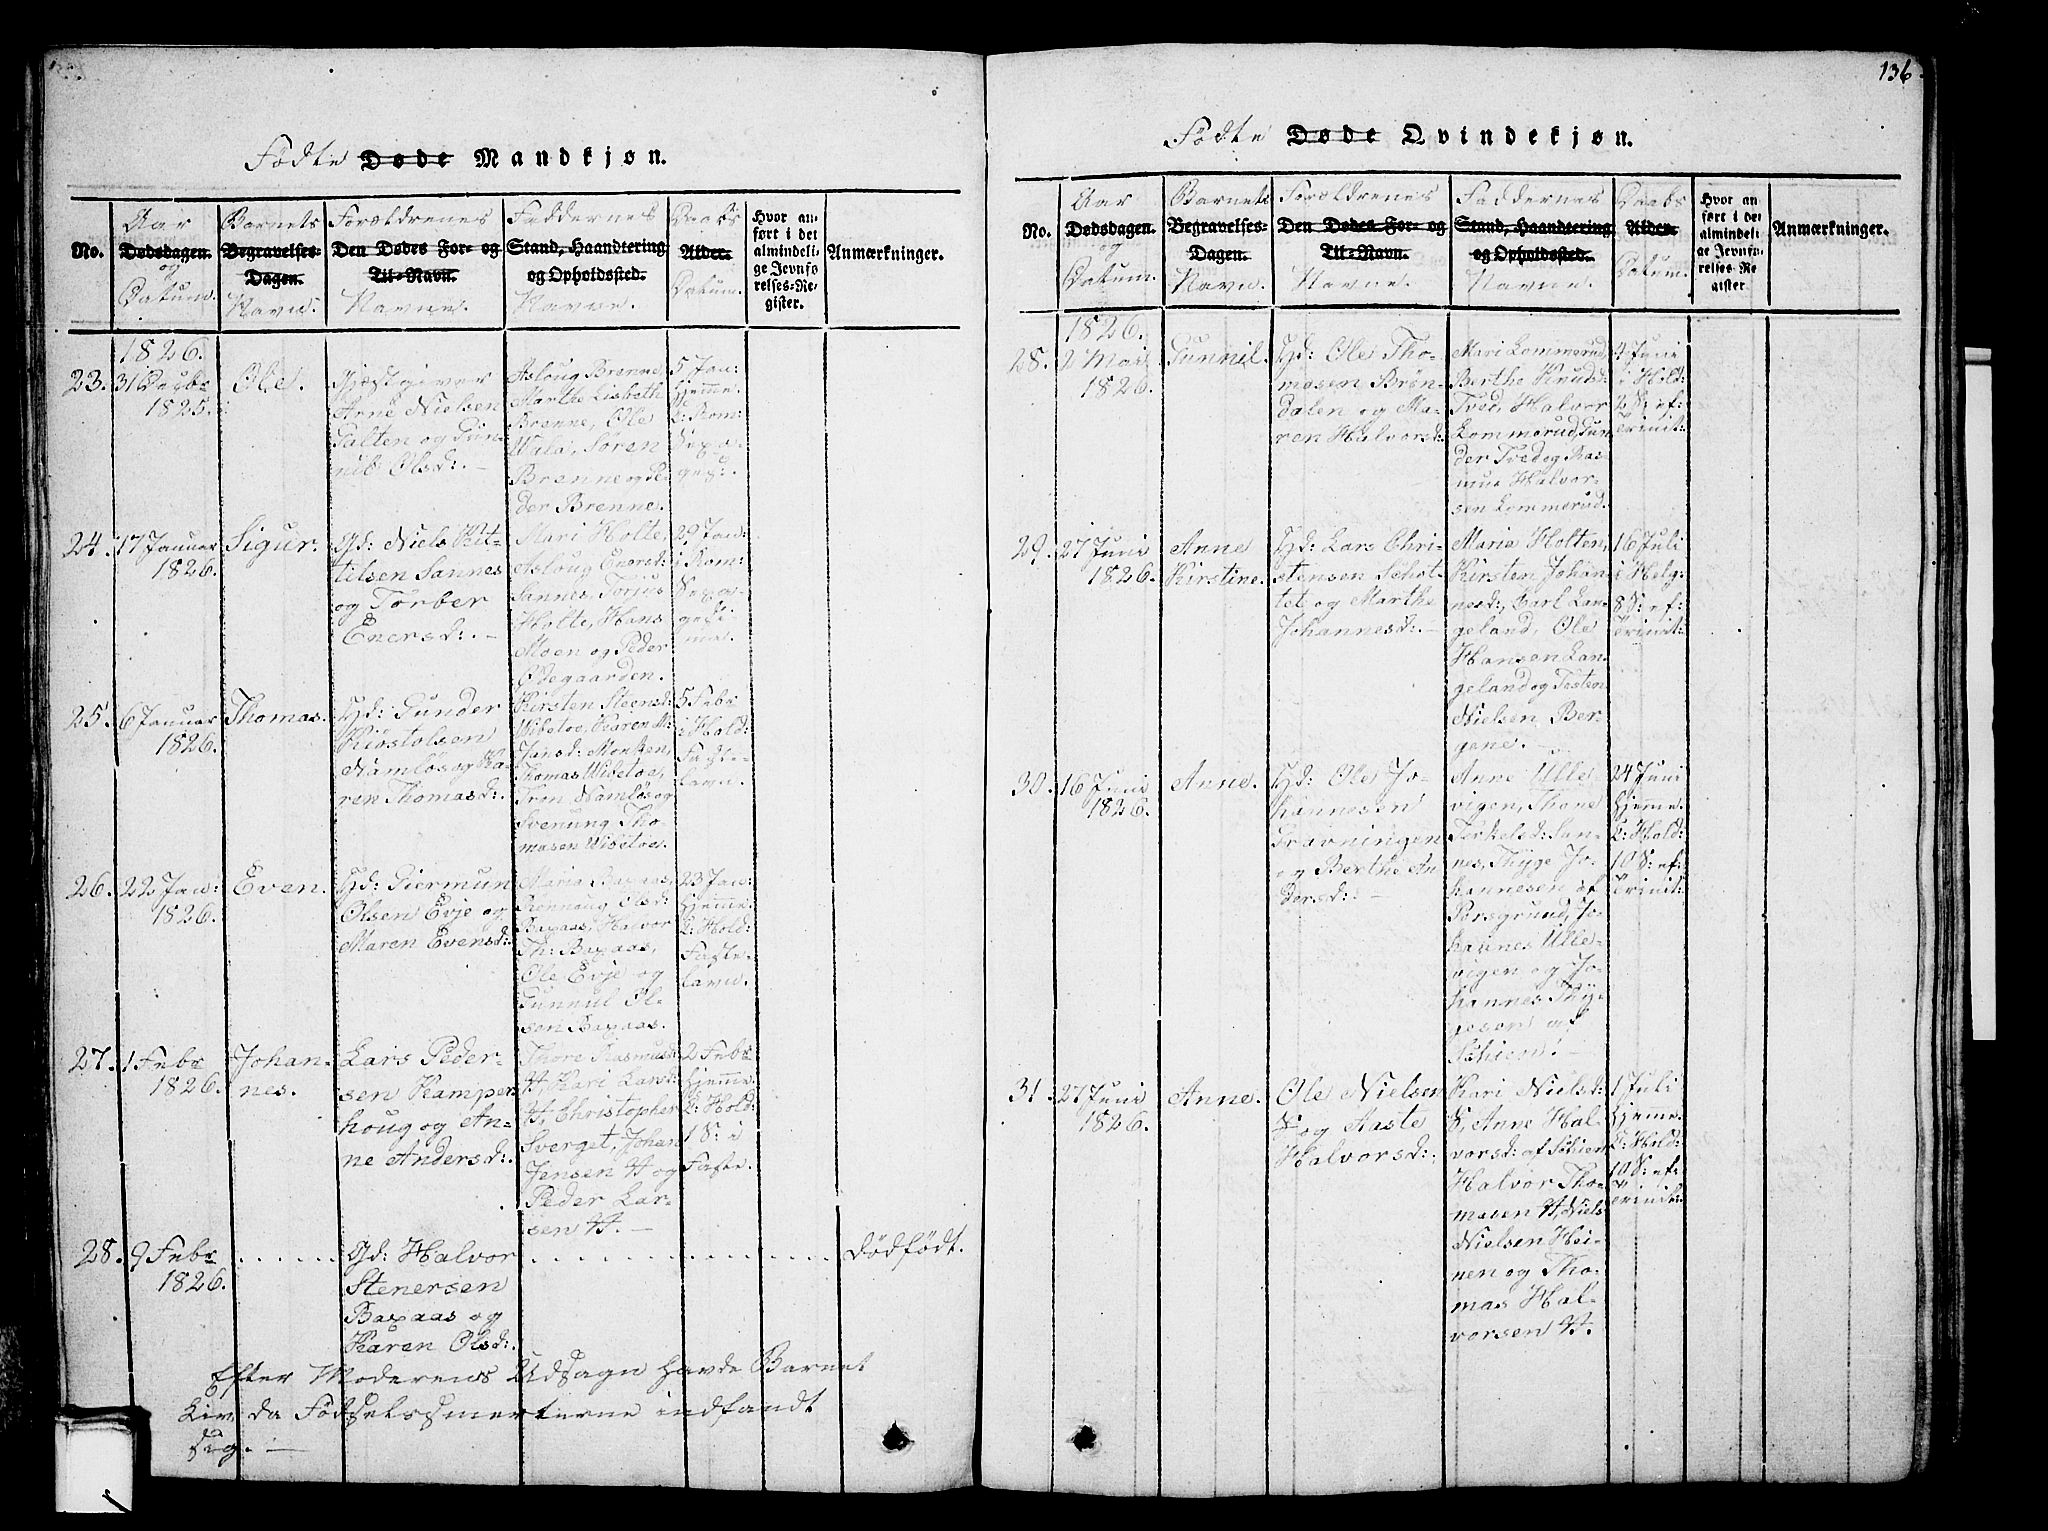 136.
Fødte Døde Mandkjøn.
No.
Aar
Dødsdagen.
og
Datum.
Barnets
Begravelses-
Dagen.
Navn.
Forældrenes
Den Dødes For- og
Til-Navn.
Navne.
Faddernes
Stand, Haandtering
og Opholdssted.
Navne.
Daabs
Alder.
Datum.
Hvor an-
ført i det
almindeli-
ge Jevnfø
relses-Re-
gister.
Anmærkninger.
1826.
23.
31 Decbr
1825.
Ole.
Gjestgiver
Arne Nielsen
Falten og Gun-
nild Olsd:. –
Asloug Brenne,
Marthe Lisbeth
Brenne, Ole
Wala, Søren
Brenne og Pe-
der Brenne.
5 Jan:
hjemme.
24.
17 Januar
1826.
Sigur.
Gd: Niels Kit-
tilsen Sannes
og Torber
Enersd:. –
Mari Holte,
Asloug Enersd:
Sannes, Torjus
Holte, Hans
Moen og Peder
Ødegaarden.
29 Jan:
i Rom:
Sexa-
gesi-
ma.
25.
6 Januar
1826.
Thomas.
Gd: Gunder
Kirstolsen
Namløs og Ka-
ren Thomasd:.
Kirsten Steensd:
Wibetoe, Karen M:
Jansd: Monken,
Thomas Wibetoe,
Tron Namløs og
Svenung Tho-
masen Wibetoe.
5 Febr
i Hold:
Faste-
lavn.
26.
22 Jan:
1826.
Even.
Gd: Giermun
Olsen Evje og
Maren Evensd:.
Maria Baxaas,
Rønnoug Olsd:
Baxaas, Halvor
Th: Baxaas,
Ole Evje og
Gunnul Ol-
sen Baxaas.
23 Jan:
hjemme.
C: Hold:
Faste-
lavn.
27.
1 Febr
1826.
Johan-
nes.
Lars Peder-
sen Kamper-
houg og An-
ne Andersd:.
Thore Rasmusd:
H, Kari Larsd:
H, Christopher
Sverget, Johan
Jensen H og
Peder Lar-
sen H. –
2 Febr
hjemme.
C: Hold:
1 S: i
Faste.
28.
9 Febr
1826.
Gd: Halvor
Stenersen
Baxaas og
Karen Olsd:.
Dødfødt.
Efter Moderens Udsagn havde Barnet
Liv da Fødselssmerterne indfandt
sig. –
Fødte Døde Qvindekjøn.
No.
Aar
Dødsdagen.
og
Datum.
Barnets
Begravelses-
Dagen.
Navn.
Forældrenes
Den Dødes For- og
Til-Navn.
Navne.
Faddernes
Stand, Haandtering
og Opholdssted.
Navne.
Daabs
Alder.
Datum.
Hvor an-
ført i det
almindeli-
ge Jevnfø-
relses-Re-
gister
Anmærkninger.
1826.
28.
2 Mai
1826.
Gunnil.
Gd: Ole Tho-
masen Brøn-
dalen og Ma-
ren Halvorsd:.
Mari Lommerud,
Berthe Knudsd:
Tved, Halvor
Lommerud, Gun
der Tved og Ras-
mus Halvor-
sen Lommerud.
4 Juni
i Hold:
2 S: ef:
Trinit:
29.
27 Juni
1826.
Anne
Kirstine.
Gd: Lars Chri-
stensen Schot-
tet og Marthe
Johannesd:. –
Maria Holten,
Kirsten Johan-
nesd:, Carl Lan-
geland, Ole
Hansen Lan-
geland og Tosten
Nielsen Ber-
gene. –
16 Juli
i Helg:
8 S: ef:
Trinit:
30.
16 Juni
1826.
Anne.
Gd: Ole Jo-
hannesen
Gravningen
og Berthe An-
dersd:. –
Anne Ulle-
vigen, Thone
Terkelsd: San-
nes, Thyge Jo-
hannesen af
Porsgrund, Jo-
hannes Ulle-
vigen og Jo-
hannes Thy-
gesen af
Schien. –
24 Juni
hjemme.
C: Hold:
10 S: ef:
Trinit:
31.
27 Juni
1826.
Anne.
Ole Nielsen
S og Aaste
Halvorsd:.
Kari Nielsd:
S, Anne Hal-
vorsd: af Schien
Halvor Tho-
masen H, Niels
Nielsen Hei-
nen og Tho-
mas Hal-
vorsen H.
1 Juli
hjemme.
C: Hold:
10 S: ef:
Trinit: